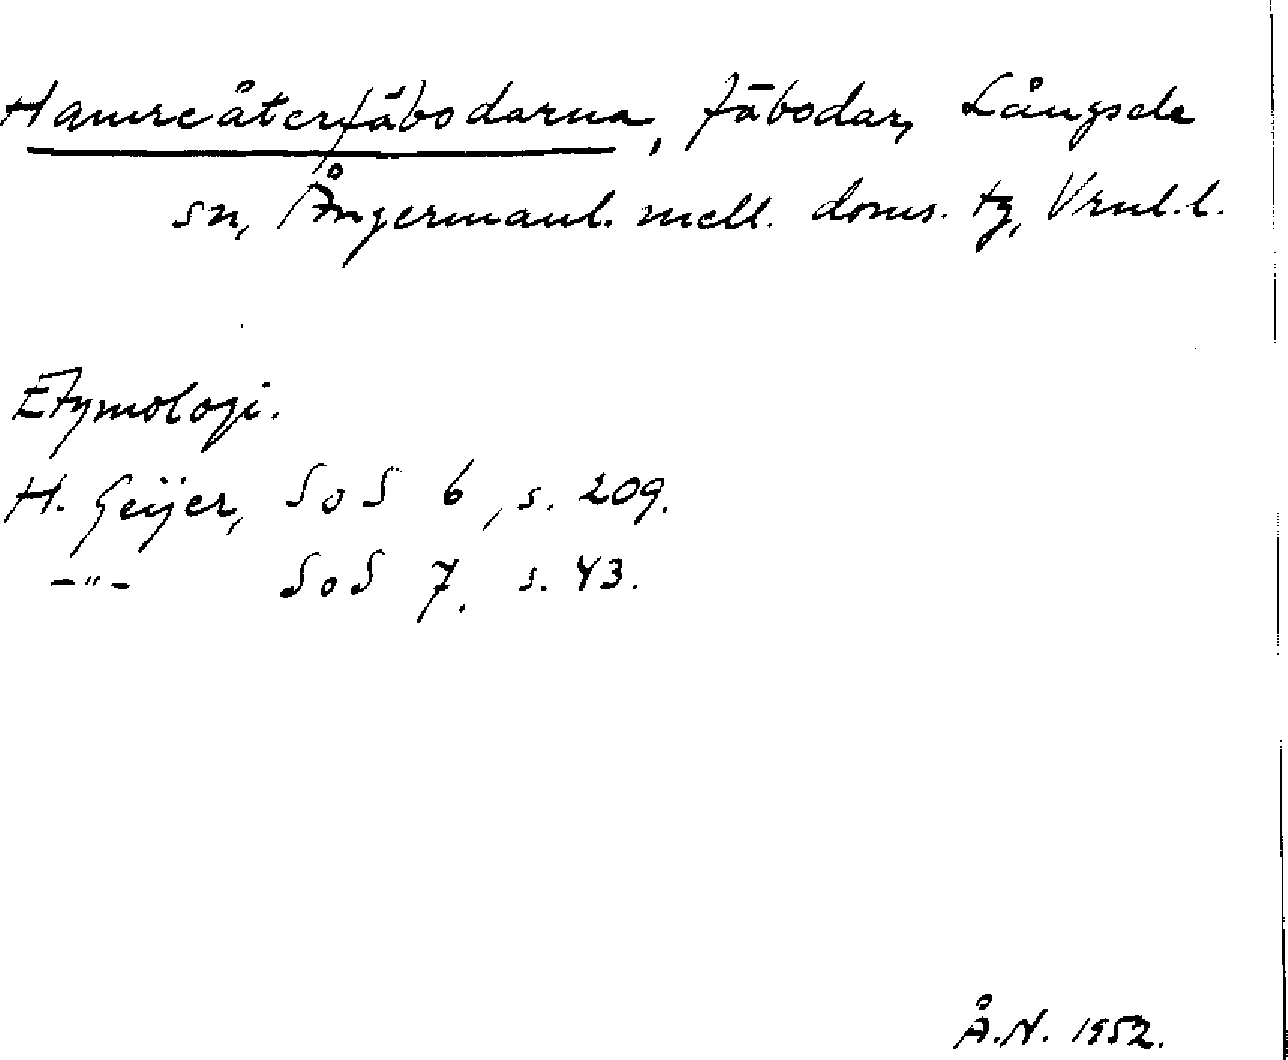 Hamreåterfäbodarna, fäbodar, Långsele
sn, Ångermanl. mell. doms. tg, Vrnl.l.
Etymologi.
H. Geijer, SoS 6, s. 209.
–"– SoS 7. s. 43.
Å.N. 1952.